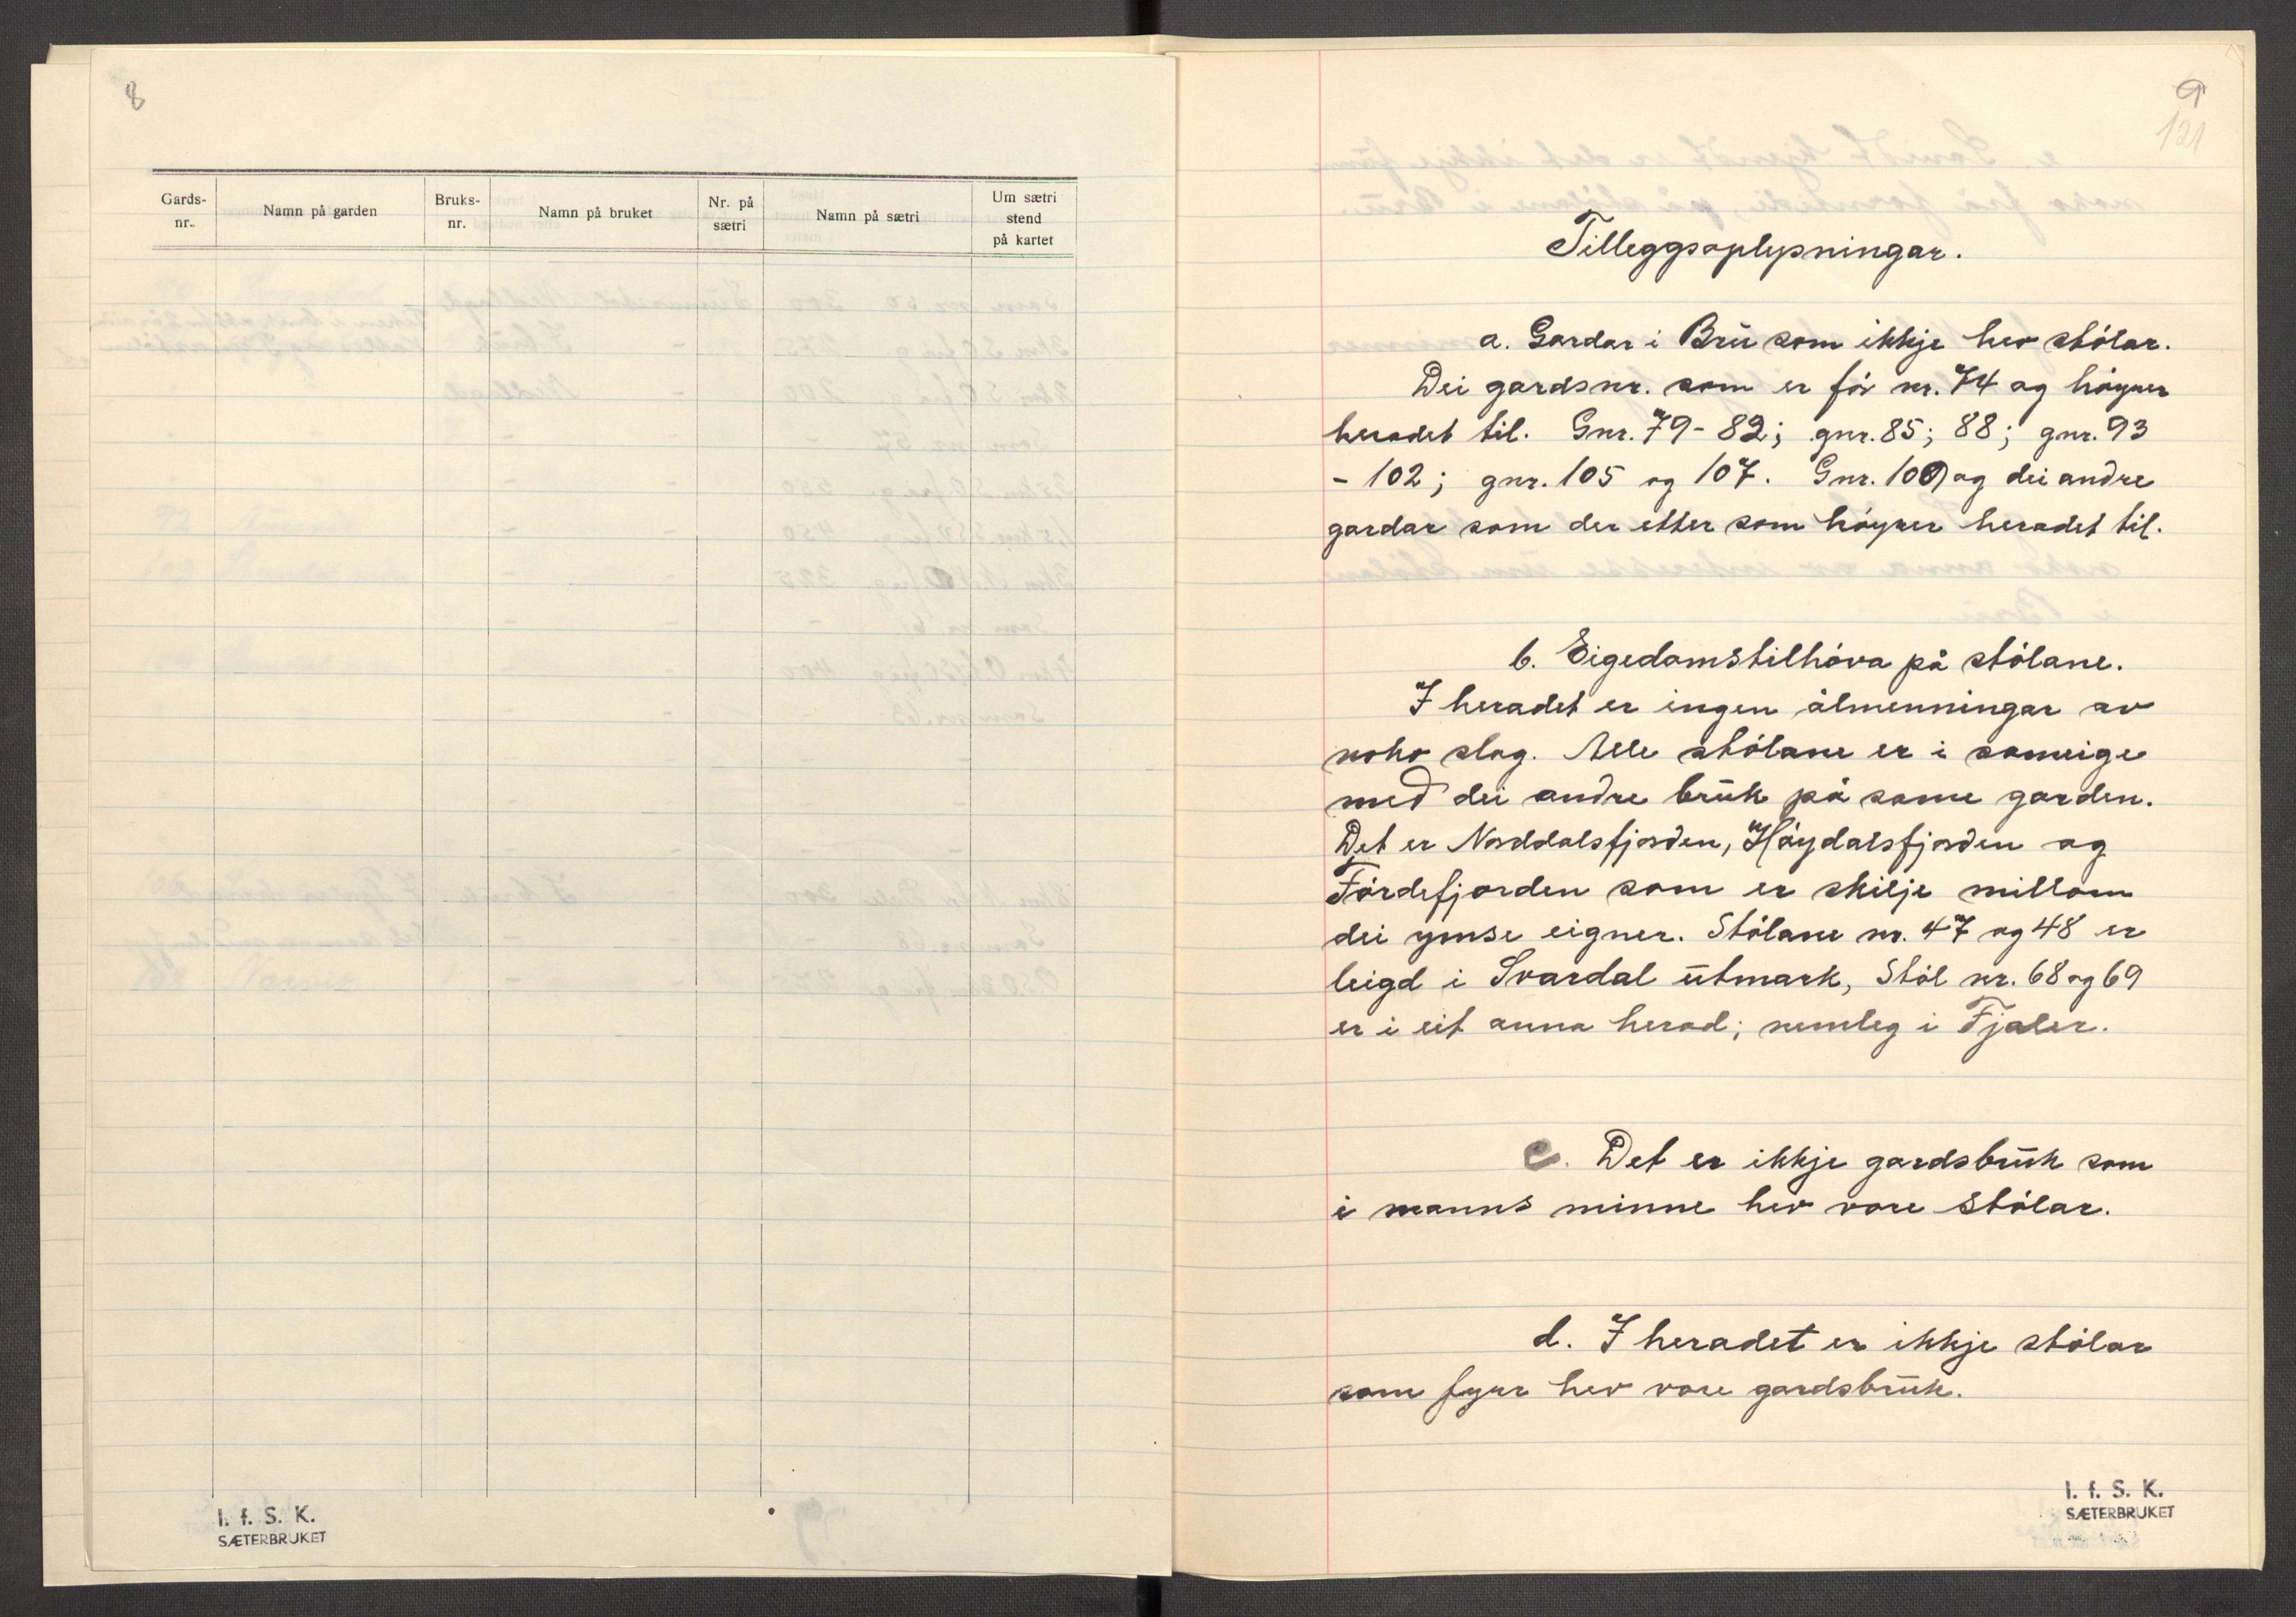 8
Gards-
nr.
Namn på garden
Bruks-
nr.
Namn på bruket
Nr. på
sætri
Namn på sætri
Um sætri
stend
på kartet
I. f. S. K.
SÆTERBRUKET
9
121
Tilleggsoplysningar.
a. Gardar i Bru som ikkje hev stólar.
Dei gardsnr. som er fór nr. 74 og höyrer
heradet til. Gnr. 79-82; gnr. 85; 88; gnr. 93
- 102; gnr. 105 og 107. Gnr. 109 og dei andre
gardar som der etter som höyrer heradet til.
b. Eigedomstilhóva på stólane.
I heradet er ingen ålmenningar av
noko slag. Alle stólane er i sameige
med dei andre bruk på same garden.
Det er Norddalsfjorden, Höydalsfjorden og
Fórdefjorden som er skilje millom
dei ymse eigner. Stólane nr. 47 og 48 er
leigd i Svardal utmark, Stól nr. 68 og 69
er i eit anna herad; nemleg i Fjaler.
c. Det er ikkje gardsbruk som
i manns minne hev vore stólar.
d. I heradet er ikkje stólar
som fyrr hev vore gardsbruk.
I. f. S. K.
SÆTERBRUKET